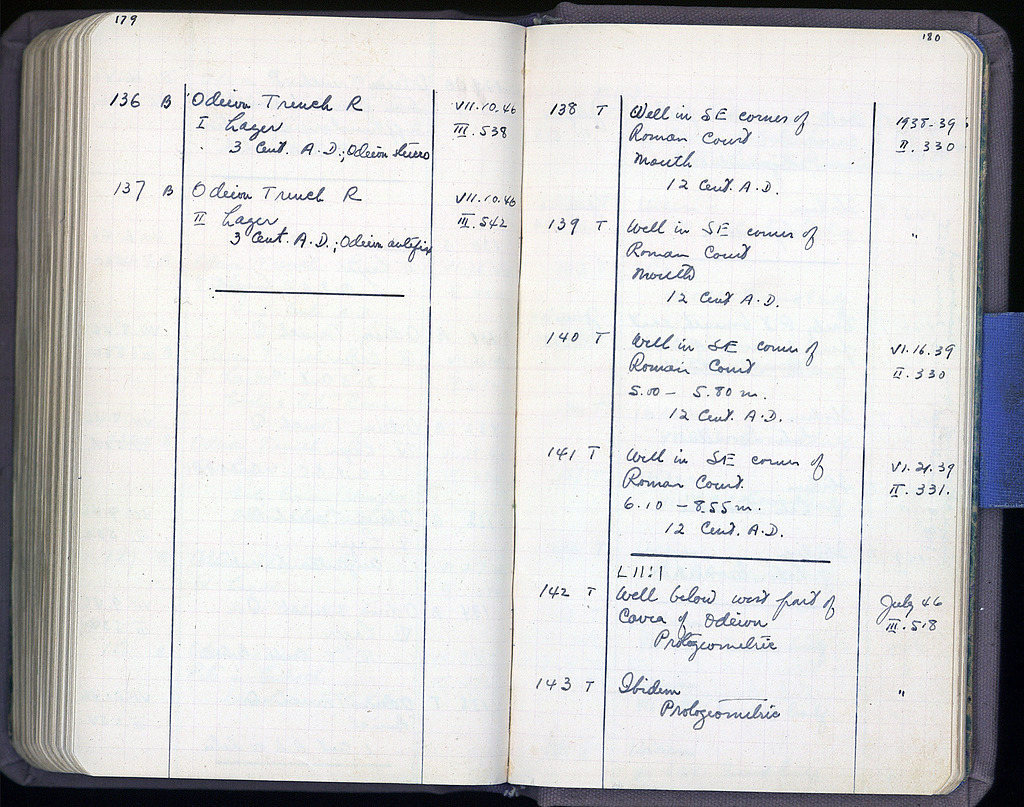 179
136 B Odeion Trench R VII.10.46
I Lager III.538
3 Cent. A.D.; Odeion stucco
137 B Odeion Trench R VII.10.46
II Lager III.542
3 Cent. A.D.; Odeion antefix
180
138 T Well in SE corner of 1938-39
Roman Court II.330
Mouth
12 Cent. A.D.
139 T Well in SE corner of "
Roman Court
Mouth
12 Cent A.D.
140 T Well in SE corner of VI.16.39
Roman Court II.330
5.00 - 5.80 m.
12 Cent. A.D.
141 T Well in SE corner of VI.21.39
Roman Court II.331.
6.10 - 8.55 m.
12 Cent. A.D.
142 T Well below west part of July 46
Cavea of Odeion III.518
Protogeometric
143 T Ibidem "
Protogeometric